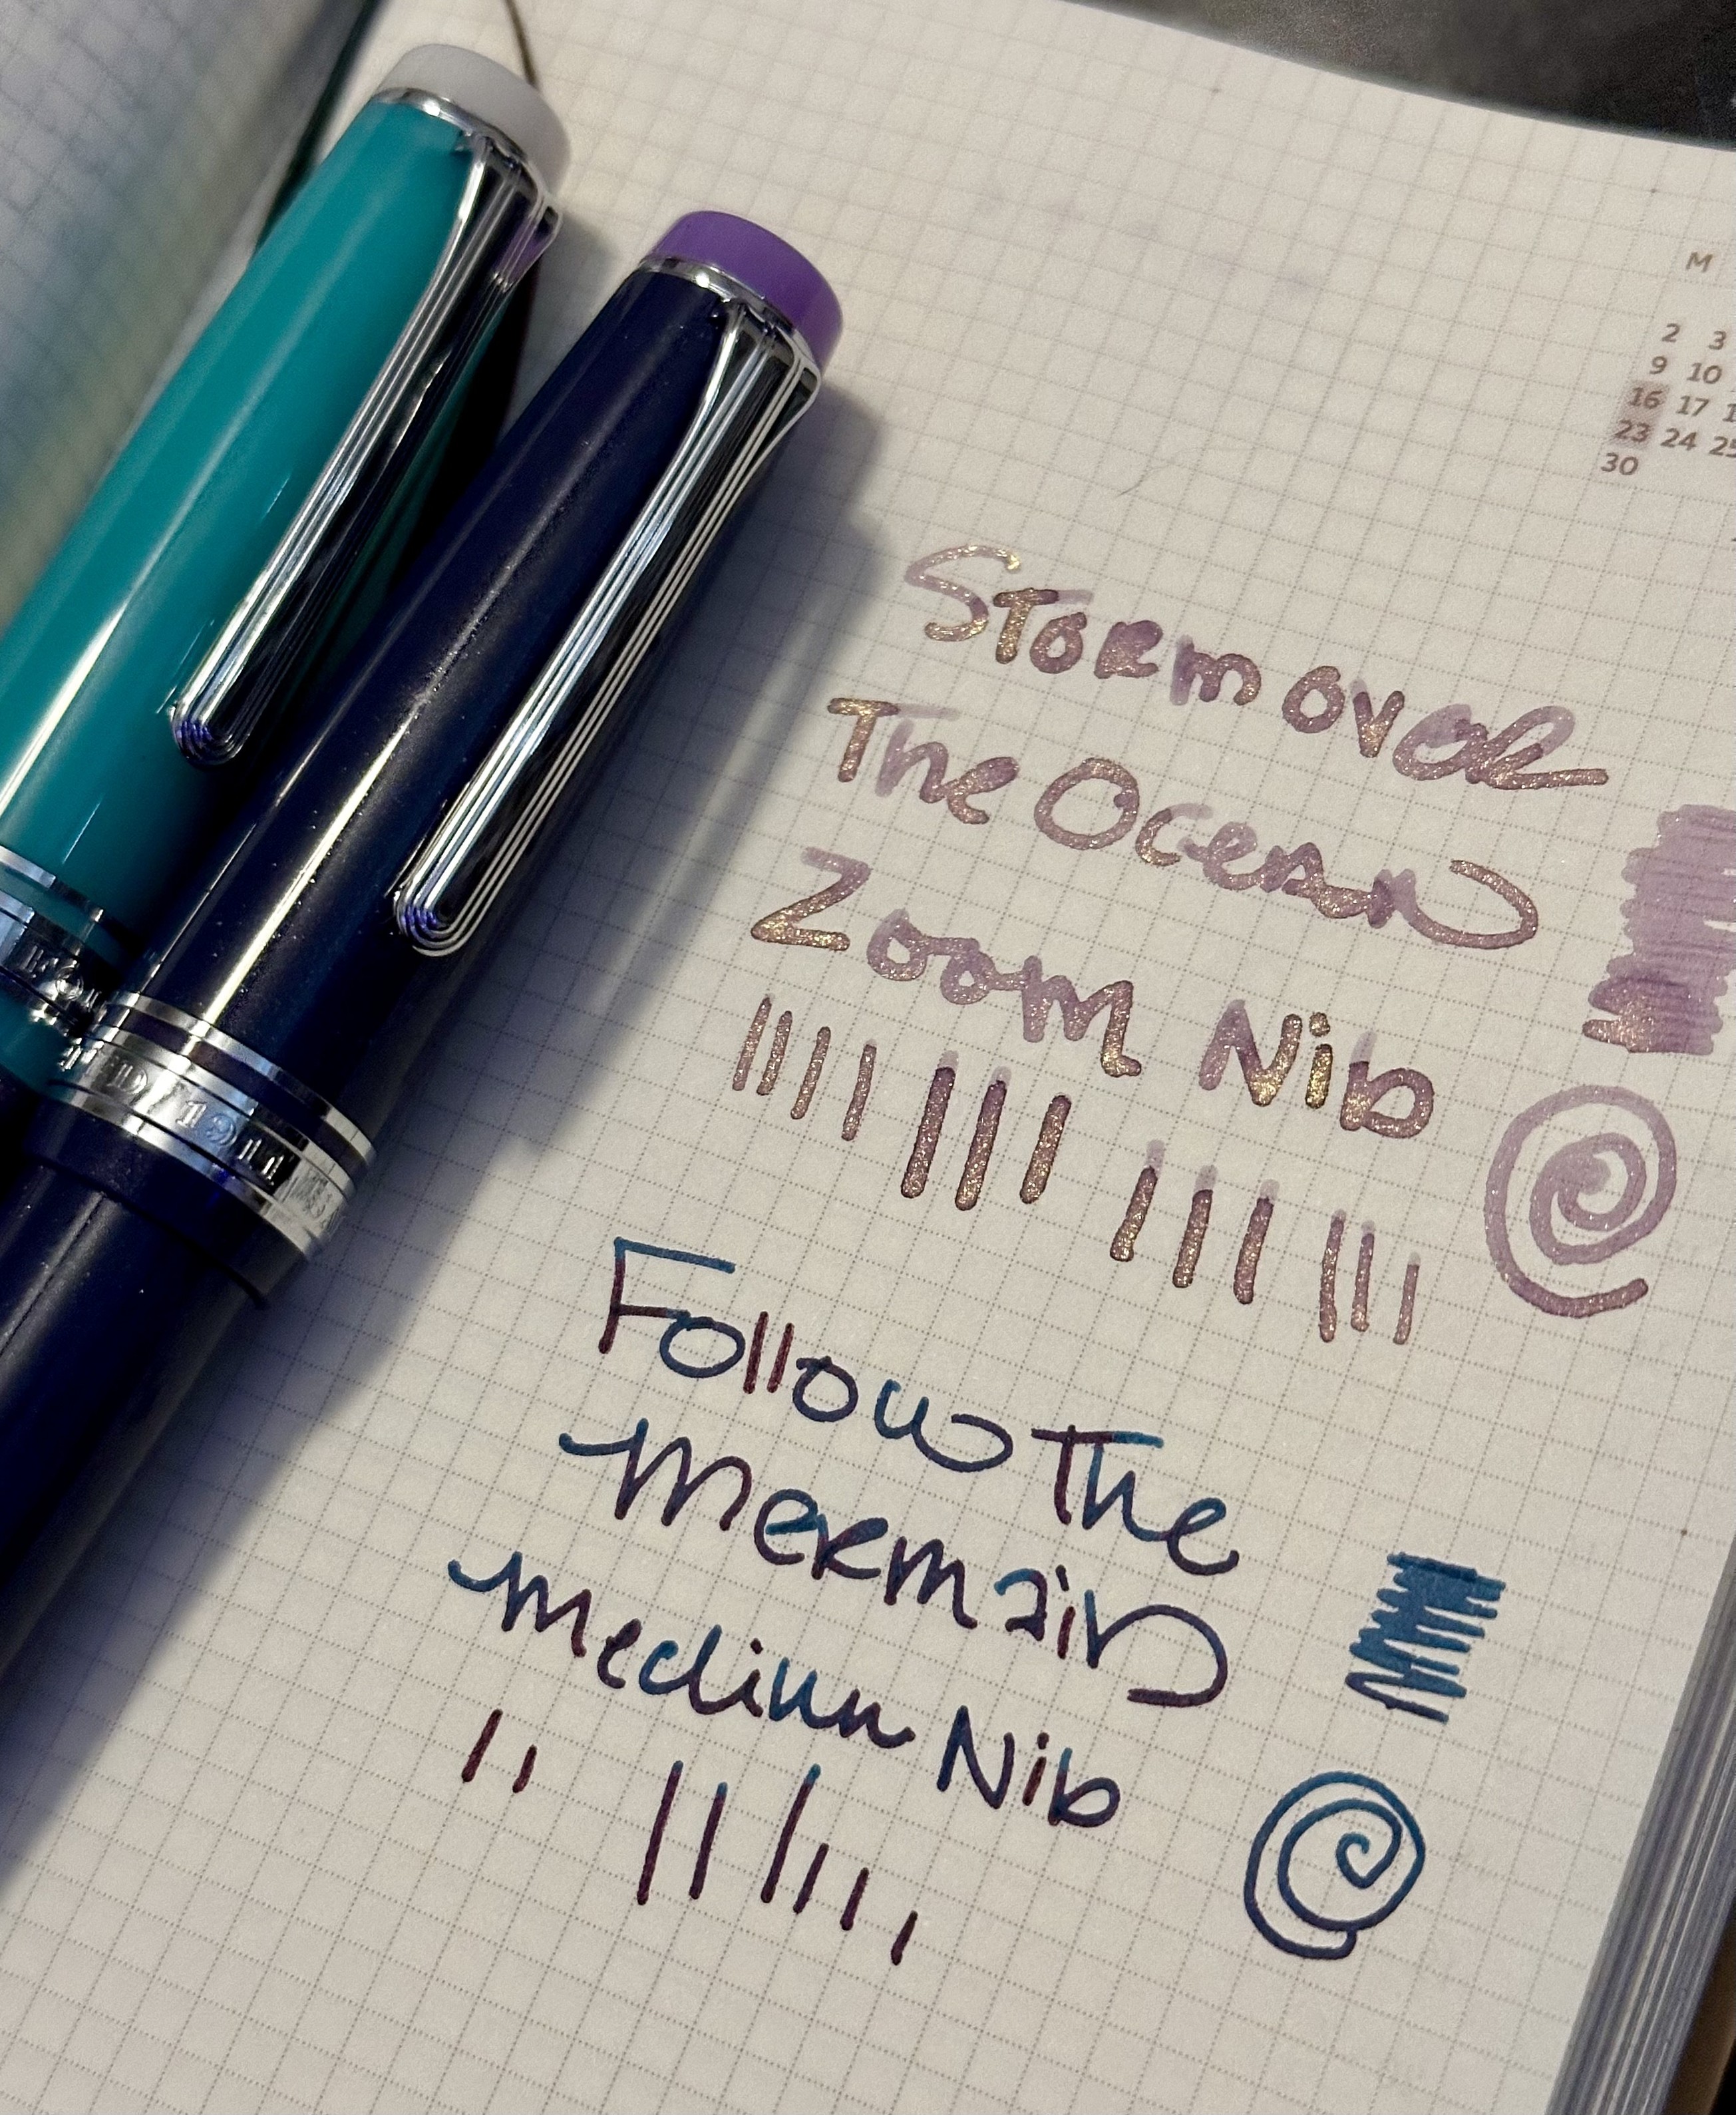 M
2 3
9 10
16 17
23 24 25
30
Storm over
The Ocean
Zoom Nib
Follow The
Mermaid
Medium Nib
1911